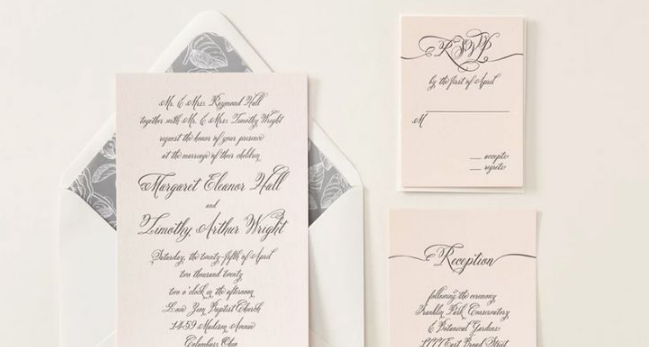 Mr. & Mrs. Raymond Hall
together with Mr. & Mrs. Timothy Wright
request the honor of your presence
at the marriage of their children
Margaret Eleanor Hall
and
Timothy Arthur Wright
Saturday, the twenty-fifth of April
two thousand twenty
two o'clock in the afternoon
Baptist Church
1459 Madison Avenue
Columbus, Ohio
RSVP
by the first of April
M
accepts
regrets
Reception
following the ceremony
Franklin Park Conservatory
& Botanical Gardens
1777 East Broad Street